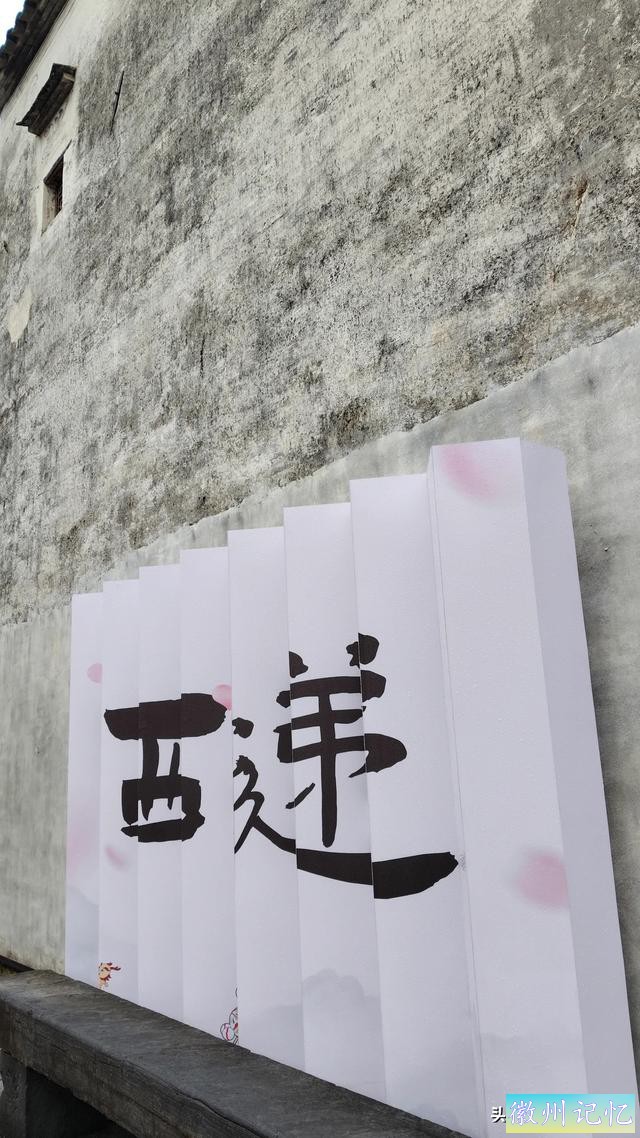 西递
头
徽州记忆